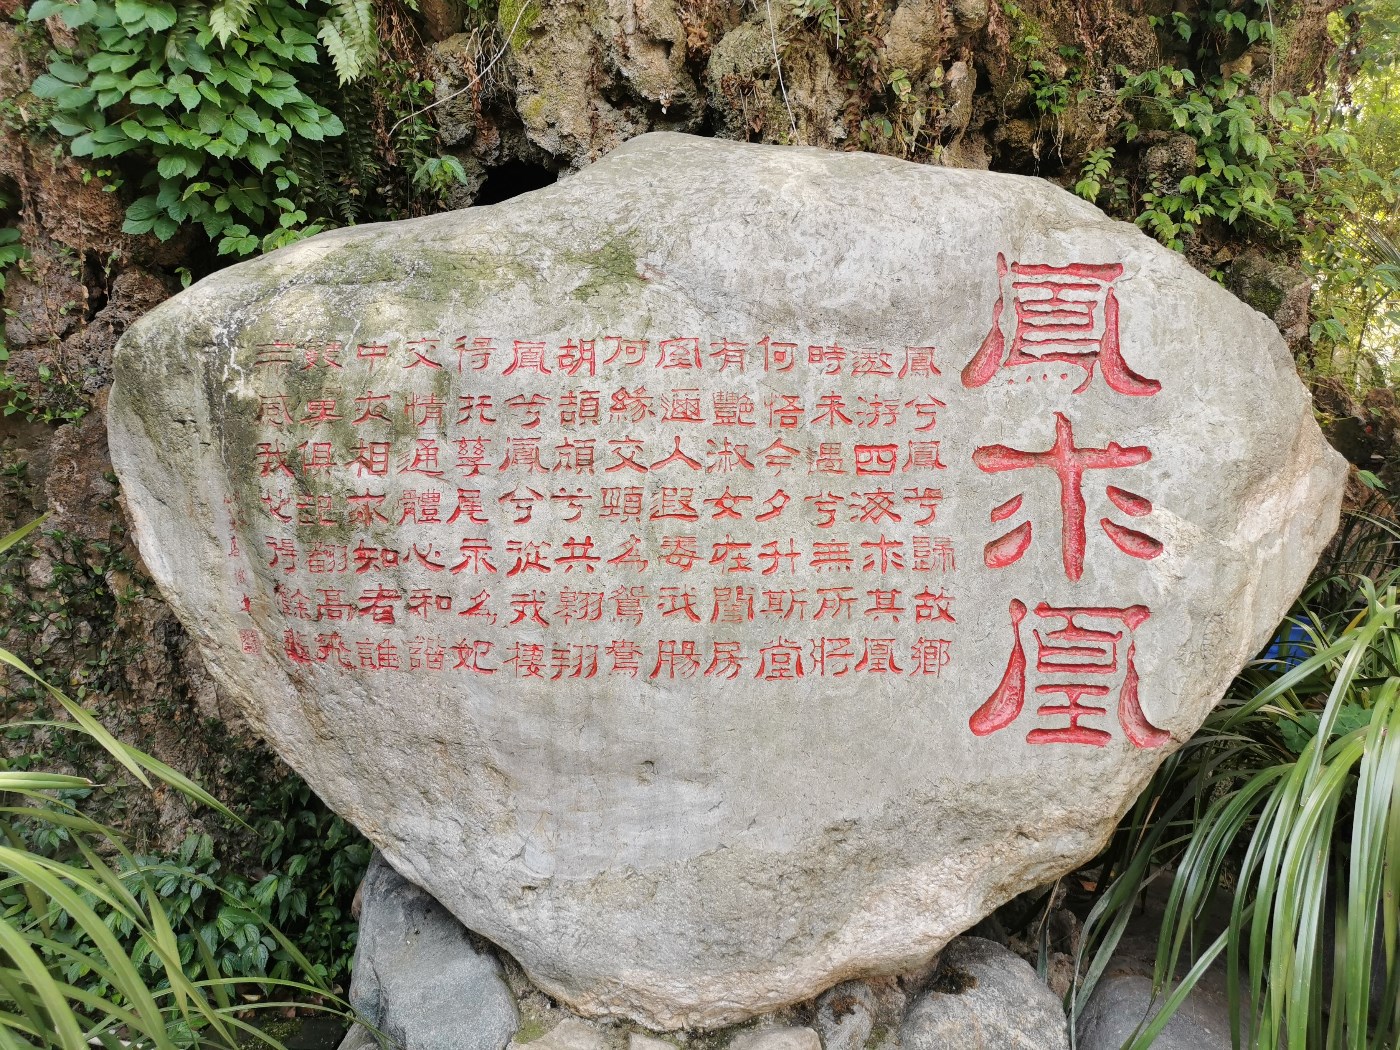 鳳求凰
鳳兮鳳兮歸故鄉
遨游四海求其凰
時未遇兮無所將
何悟今夕升斯堂
有艷淑女在閨房
室邇人遐毒我腸
何緣交頸為鴛鴦
胡頡頏兮共翱翔
凰兮凰兮從我棲
得托孳尾永為妃
交情通體心和諧
中夜相從知者誰
雙翼俱起翻高飛
無感我思使余悲